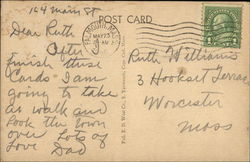 164 Main St
POST CARD
Dear Ruth
After
finish these
Cards I am
going to take
a walk and
look the town
over Lots of
Love Dad
FALMOUTH
MAY 23
Ruth Williams
3 Hookset Terrace
Worcester
Mass